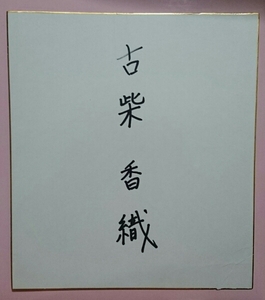 古柴香織